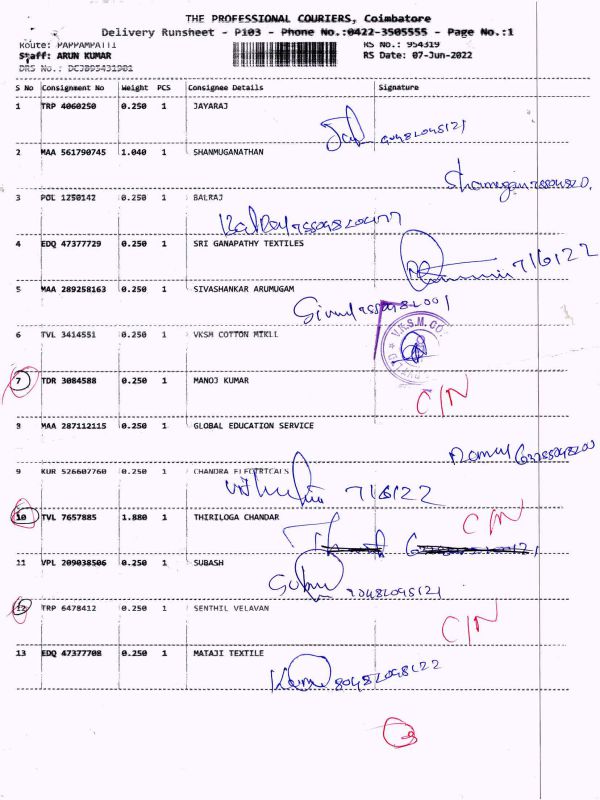 THE PROFESSIONAL COURIERS, Coimbatore
Delivery Runsheet - P103 - Phone No.:0422-3505555 - Page No.:1
Route: PAPPAMPATTI RS No.: 954319
Staff: ARUN KUMAR RS Date: 07-Jun-2022
DRS No.: DCJB95431901
S No Consignment No Weight PCS Consignee Details Signature
1 TRP 4060250 0.250 1 JAYARAJ
2 MAA 561790745 1.040 1 SHANMUGANATHAN
3 POL 1250142 0.250 1 BALRAJ
4 EDQ 47377729 0.250 1 SRI GANAPATHY TEXTILES
7/6/22
5 MAA 289258163 0.250 1 SIVASHANKAR ARUMUGAM
6 TVL 3414551 0.250 1 VKSM COTTON MIKLL
V.K.S.M. CO
7 TDR 3084588 0.250 1 MANOJ KUMAR
C/N
8 MAA 287112115 0.250 1 GLOBAL EDUCATION SERVICE
9 KUR 526607760 0.250 1 CHANDRA ELECTRICALS
7/6/22
10 TVL 7657885 1.880 1 THIRILOGA CHANDAR
C/N
11 VPL 209038506 0.250 1 SUBASH
12 TRP 6478412 0.250 1 SENTHIL VELAVAN
C/N
13 EDQ 47377708 0.250 1 MATAJI TEXTILE